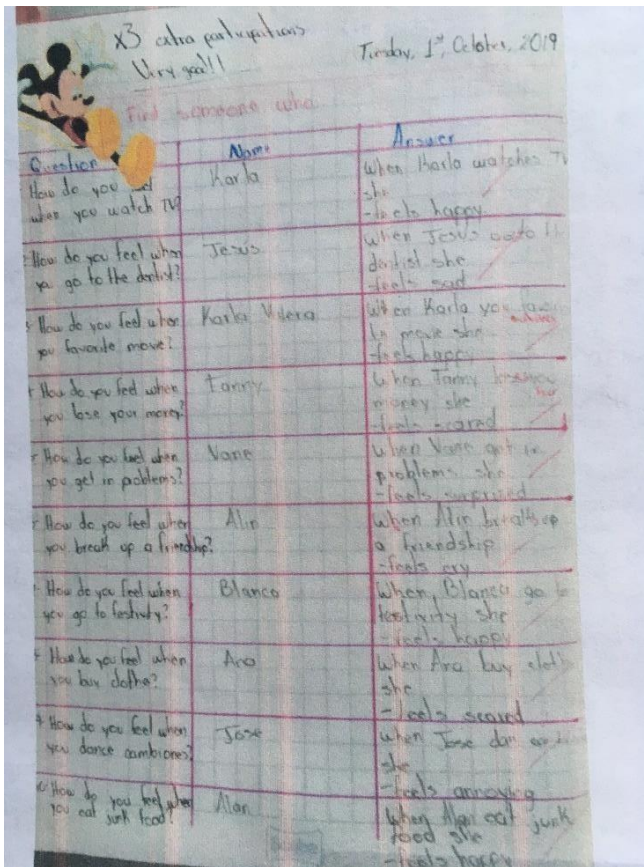 x3 extra participations
Very good!!
Tuesday, 1st, October, 2019
Find someone who
Question
Name
Answer
How do you
when you watch TV?
Karla
When Karla watches TV
she
-feels happy
How do you feel when
you go to the dentist?
Jesús
when Jesús
dentist she
feels sad
How do you feel when
you favorite movie?
Karla
When Karla you
movie she
feels happy
How do you feel when
you lose your money?
Fanny
When Fanny
money she
her
-feels scared
How do you feel when
you get in problems?
Vane
When Vane get in
problems she
-feels surprised
How do you feel when
you break up a friendship?
Alin
when Alin
a friendship
-feels cry
How do you feel when
you go to festivity?
Blanca
When Blanca go to
festivity she
-feels happy
How do you feel when
you buy clothe?
Ara
When Ara buy
she
-feels scared
How do you feel when
you dance
Jose
when Jose
she
-feels annoying
How do you feel when
you eat junk food?
Alan
When Alan eat junk
food she
-feels happy